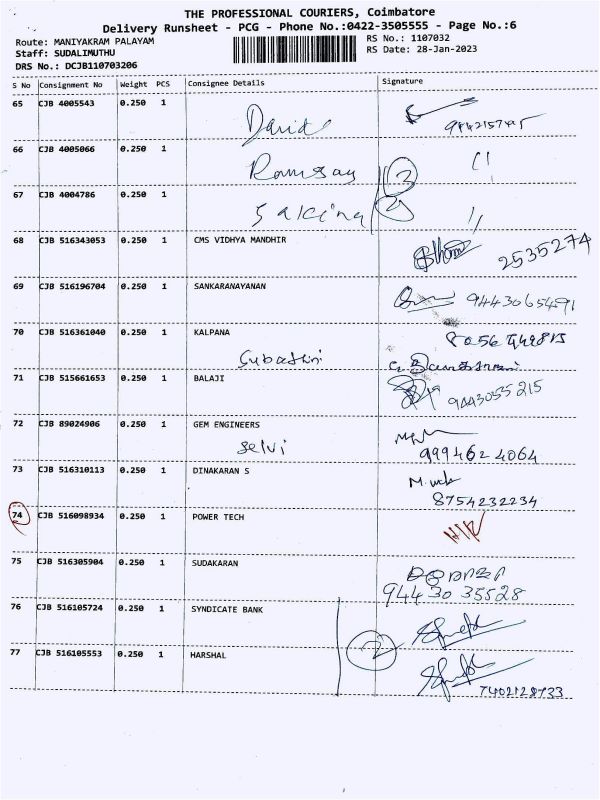 THE PROFESSIONAL COURIERS, Coimbatore
Delivery Runsheet - PCG - Phone No.:0422-3505555 - Page No.:6
Route: MANIYAKRAM PALAYAM
Staff: SUDALIMUTHU
DRS No.: DCJB110703206
RS No.: 1107032
RS Date: 28-Jan-2023
S No Consignment No Weight PCS Consignee Details Signature
65 CJB 4005543 0.250 1
66 CJB 4005066 0.250 1 2
67 CJB 4004786 0.250 1 2
68 CJB 516343053 0.250 1 CMS VIDHYA MANDHIR
2535274
69 CJB 516196704 0.250 1 SANKARANAYANAN
9443065491
70 CJB 516361040 0.250 1 KALPANA
71 CJB 515661653 0.250 1 BALAJI
9443055215
72 CJB 89024906 0.250 1 GEM ENGINEERS
Selvi 9994624064
73 CJB 516310113 0.250 1 DINAKARAN S
8754232234
74 CJB 516098934 0.250 1 POWER TECH
75 CJB 516305904 0.250 1 SUDAKARAN
9443035528
76 CJB 516105724 0.250 1 SYNDICATE BANK
77 CJB 516105553 0.250 1 HARSHAL 2